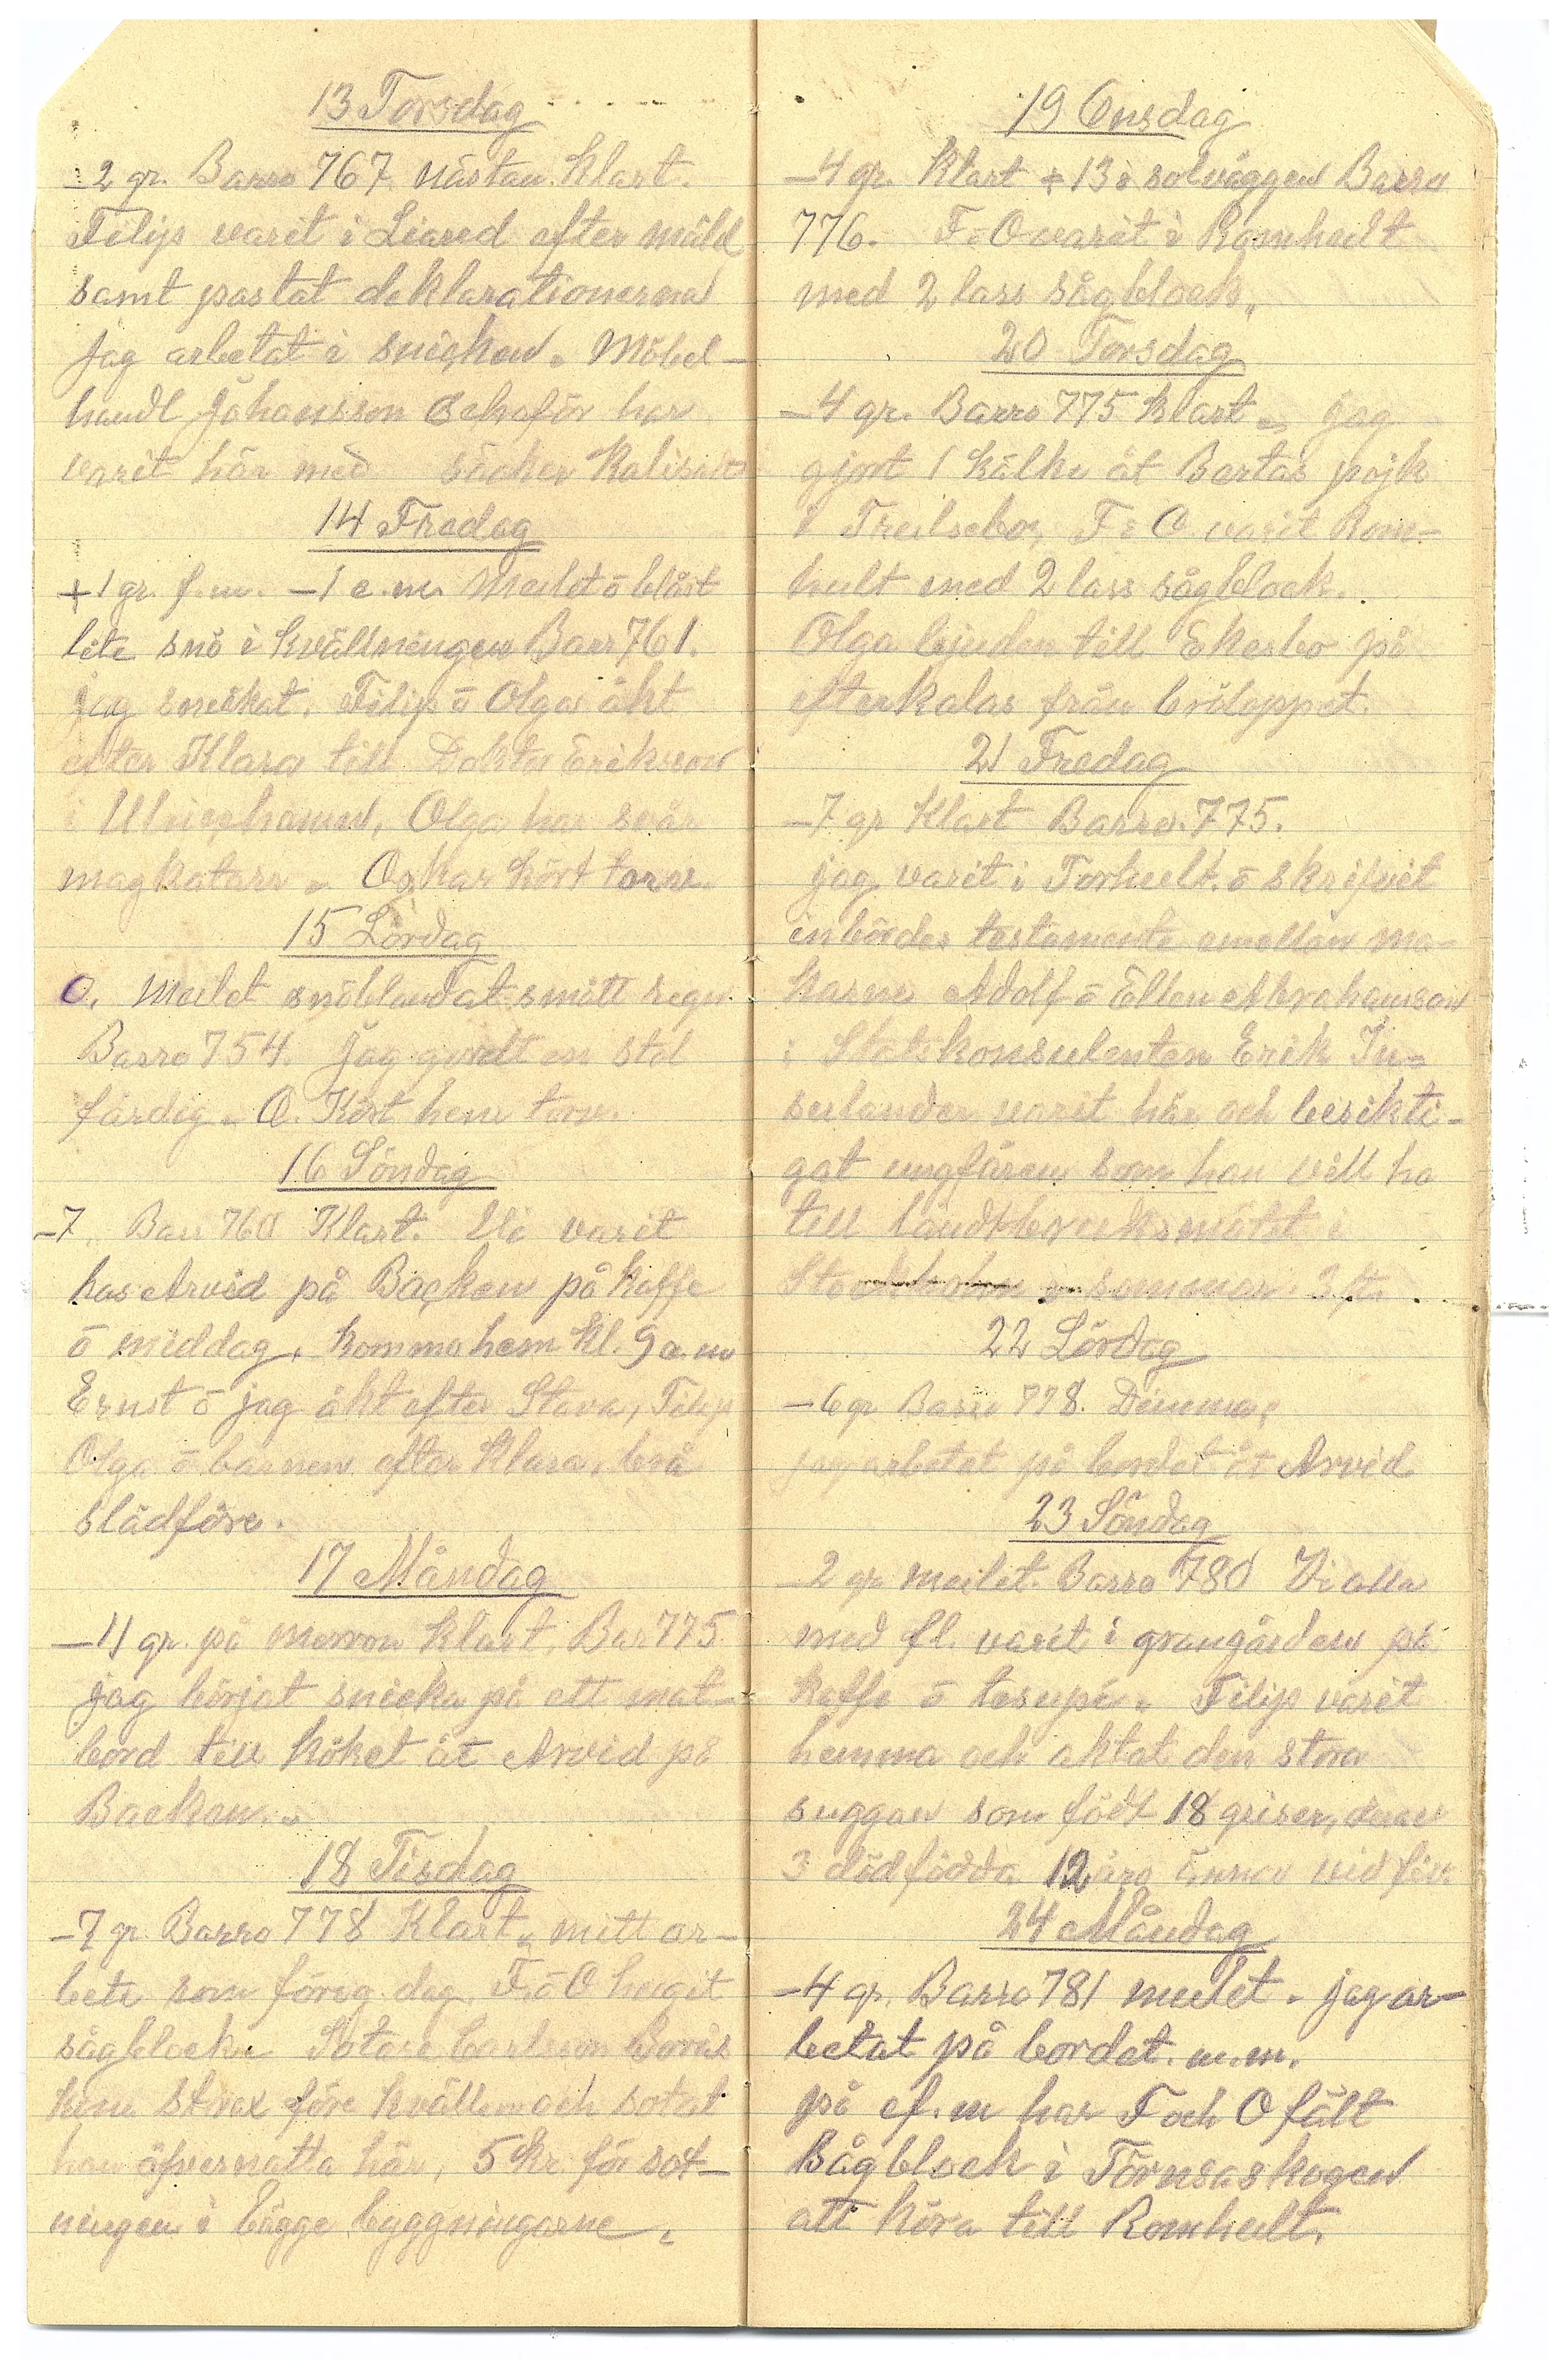 13 Torsdag
-2 gr. Barro 767 nästan klart.
Filip varit i Liared efter mäld
samt postat deklarationerna
jag arbetat i snickeri. Möbel-
handl Johansson Schoför har
varit här med säcker Kalisalt
14 Fredag
+1 gr. f.m. -1 e.m. Mulet ō blåst
lite snö i kvällningen Barr 761.
jag snickat. Filip ō Olga åkt
efter Klara till Doktor Erikson
i Ulricehamn, Olga har svår
magkatarr. Oskar kört torv.
15 Lördag
0. Mulet snöblandat smått regn
Barro 754. Jag gordt en stol
färdig. O. Kört hem torv.
16 Söndag
-7. Bar 760 Klart. Vi varit
hos Arvid på Backen på kaffe
ō middag, komma hem kl. 9 e.m
Ernst ō jag åkt efter Stava, Filip
Olga ō barnen efter Klara, bra
slädföre.
17 Måndag
-11 gr. på morron klart, Bar 775
jag börjat snicka på ett mat-
bord till köket åt Arvid på
Backen.
18 Tisdag
-7 gr. Barro 778 Klart, mitt ar-
bete som föreg. dag. F. ō O hugit
sågblock. Sotare Carlsson Borås
kom strax före kvällen och sotat
han öfvernatta här, 5 kr. för sot-
ningen i bägge byggningarne.
19 Onsdag
-4 gr. Klart +13 i solväggen Barro
776. F. O varit i Romhult
med 2 lass sågblock.
20 Torsdag
-4 gr. Barro 775 klart. jag
gjort 1 kälke åt Bertas pojk
i Trälsebo, F ō O varit Rom-
hult med 2 lass sågblock.
Olga bjuden till Ekesbo på
efterkalas från bröloppet.
21 Fredag
-7 gr Klart Barro. 775.
jag varit i Torhult ō skrifvit
inbördes testamente emellan ma-
karne Adolf ō Ellen Abrahamson
: Statskonsulenten Erik In-
sulander varit här och besikti-
gat ungfären som han vill ha
till landtbruksmötet i
Stockholm i sommar 3 st.
22 Lördag
-6 gr Barro 778. Dimma,
jag arbetat på bordet åt Arvid
23 Söndag
-2 gr mulet. Barro 780 Vi alla
med fl. varit i grangården på
kaffe ō tesupé. Filip varit
hemma och aktat den stora
suggan som födt 18 griser, derav
3 dödfödda 12 äro ännu vid liv.
24 Måndag
-4 gr. Barro 781 mulet. jag ar-
betat på bordet. m.m.
på ef.m har F och O fält
Sågblock i Törnsaskogen
att köra till Romhult.